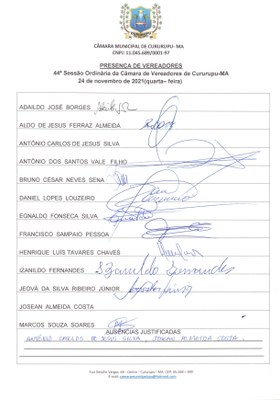 CURURUPU
CÂMARA MUNICIPAL DE CURURUPU- MA
CNPJ: 11.045.689/0001-97
PRESENÇA DE VEREADORES
44ª Sessão Ordinária da Câmara de Vereadores de Cururupu-MA
24 de novembro de 2021(quarta– feira)
ADAILDO JOSÉ BORGES
ALDO DE JESUS FERRAZ ALMEIDA
ANTÔNIO CARLOS DE JESUS SILVA
ANTÔNIO DOS SANTOS VALE FILHO
BRUNO CESAR NEVES SENA
DANIEL LOPES LOUZEIRO
EGNALDO FONSECA SILVA
FRANCISCO SAMPAIO PESSOA
HENRIQUE LUÍS TAVARES CHAVES
IZANILDO FERNANDES Izanildo Fernandes
JEOVÁ DA SILVA RIBEIRO JÚNIOR
JOSEAN ALMEIDA COSTA
MARCOS SOUZA SOARES
AUSÊNCIAS JUSTIFICADAS
ANTÔNIO CARLOS DE JESUS SILVA, JOSEAN ALMEIDA COSTA.